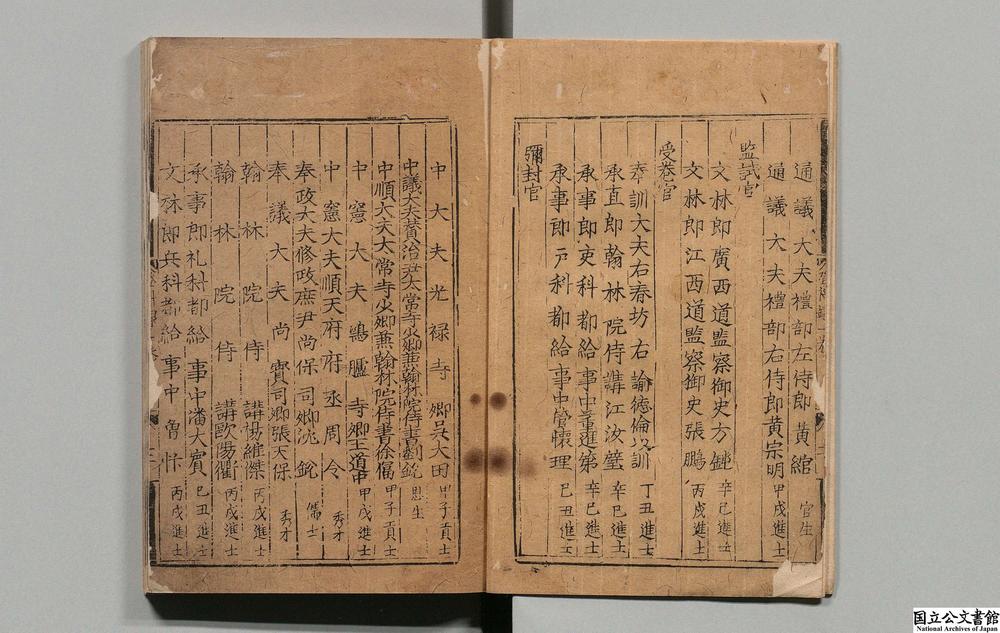 通議大夫禮部左侍郎黃綰 官生
通議大夫禮部右侍郎黃宗明 甲戌進士
監試官
文林郎廣西道監察御史方 辛巳進士
文林郎江西道監察御史張鵬 丙戌進士
受卷官
奉訓大夫右春坊右諭德倫以訓 丁丑進士
承直郎翰林院侍講江汝璧 辛巳進士
承事郎吏科都給事中董進第 辛巳進士
承事郎戶科都給事中管懷理 己丑進士
彌封官
中大夫光禄寺卿吳大田 甲子貢士
中議大夫贊治尹太常寺少卿兼翰林院侍書劉銳 恩生
中順大夫太常寺少卿兼翰林院侍書徐富 甲子貢士
中憲大夫鴻臚寺卿王道中 甲戌進士
中憲大夫順天府府丞周令 秀才
奉政大夫修政庶尹尚保司卿沈銳 儒士
奉議大夫尚寳司卿張天保 秀才
翰林院侍講楊維傑 丙戌進士
翰林院侍講歐陽衢 丙戌進士
承事郎礼科都給事中潘大賓 己丑進士
文林郎兵科都給事中魯 丙戌進士
国立公文書館
National Archives of Japan